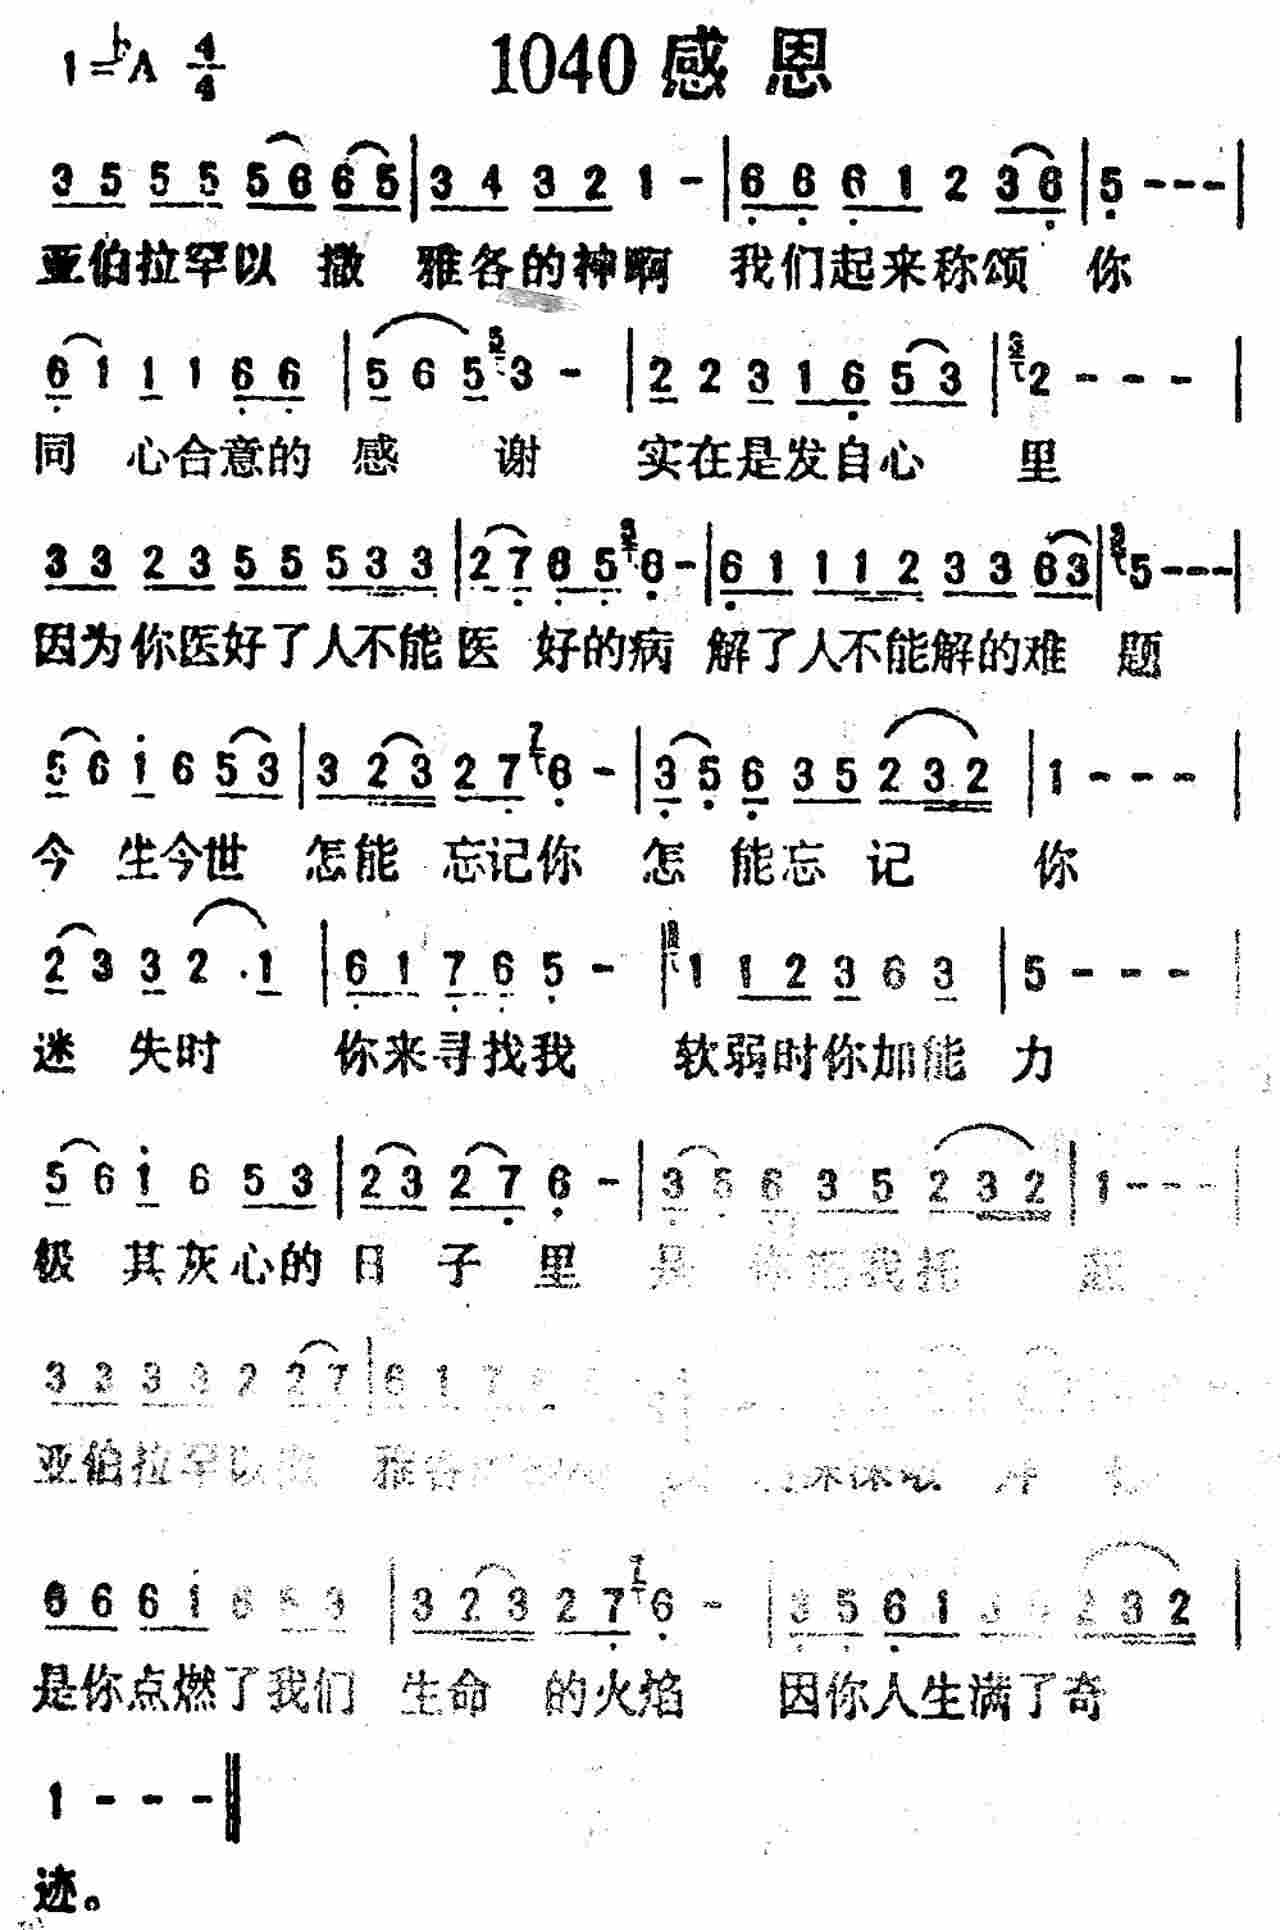 1=♭A 4/4 1040 感恩
3 5 5 5 5 6 6 5 | 3 4 3 2 1 - | 6 6 6 1 2 3 6 | 5 - - - |
亚伯拉罕以 撒 雅各的神啊 我们起来称颂 你
6 1 1 1 6 6 | 5 6 5 5 3 - | 2 2 3 1 6 5 3 | 3 2 - - - |
同 心合意的 感 谢 实在是发自心 里
3 3 2 3 5 5 5 3 3 | 2 7 6 5 6 - | 6 1 1 1 2 3 3 6 3 | 5 - - - |
因为你医好了人不能医 好的病 解了人不能解的难 题
5 6 1 6 5 3 | 3 2 3 2 7 7 6 - | 3 5 6 3 5 2 3 2 | 1 - - - |
今 生今世 怎能 忘记你 怎 能忘 记 你
2 3 3 2 . 1 | 6 1 7 6 5 - | 1 1 2 3 6 3 | 5 - - - |
迷 失时 你来寻找我 软弱时你加能 力
5 6 1 6 5 3 | 2 3 2 7 6 - | 3 5 6 3 5 2 3 2 | 1 - - - |
极 其灰心的 日 子 里 是 你把我托
3 3 3 3 2 2 7 | 6 1 7
亚伯拉罕以撒 雅各
6 6 6 1 6 5 3 | 3 2 3 2 7 7 6 - | 3 5 6 1 2 3 2 |
是你点燃了我们 生命 的火焰 因你人生满了奇
1 - - -
迹。